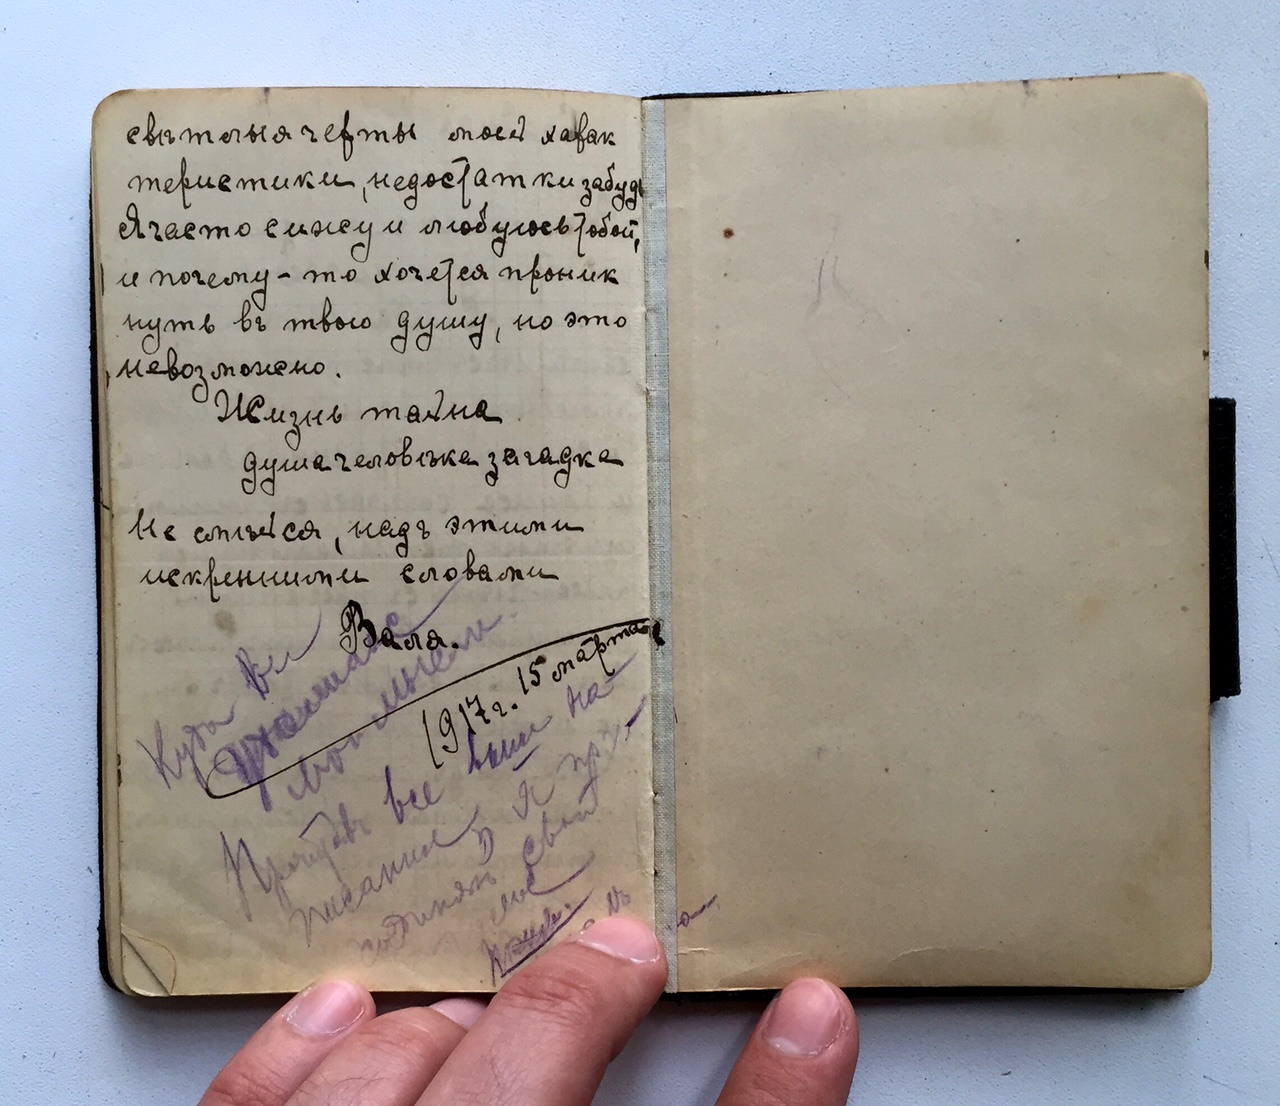 свѣтлыя черты моей харак
теристики, недостатки забудь
Я часто сижу и любуюсь тобой,
и почему-то хочется проник
нуть въ твою душу, но это
невозможно.
Жизнь тайна
душа человѣка загадка
Не смѣйся, надъ этими
искренними словами
Валя.
1917 г. 15 марта
Куда вы
мои мысли.
все ваши на-
писания, Я
свой